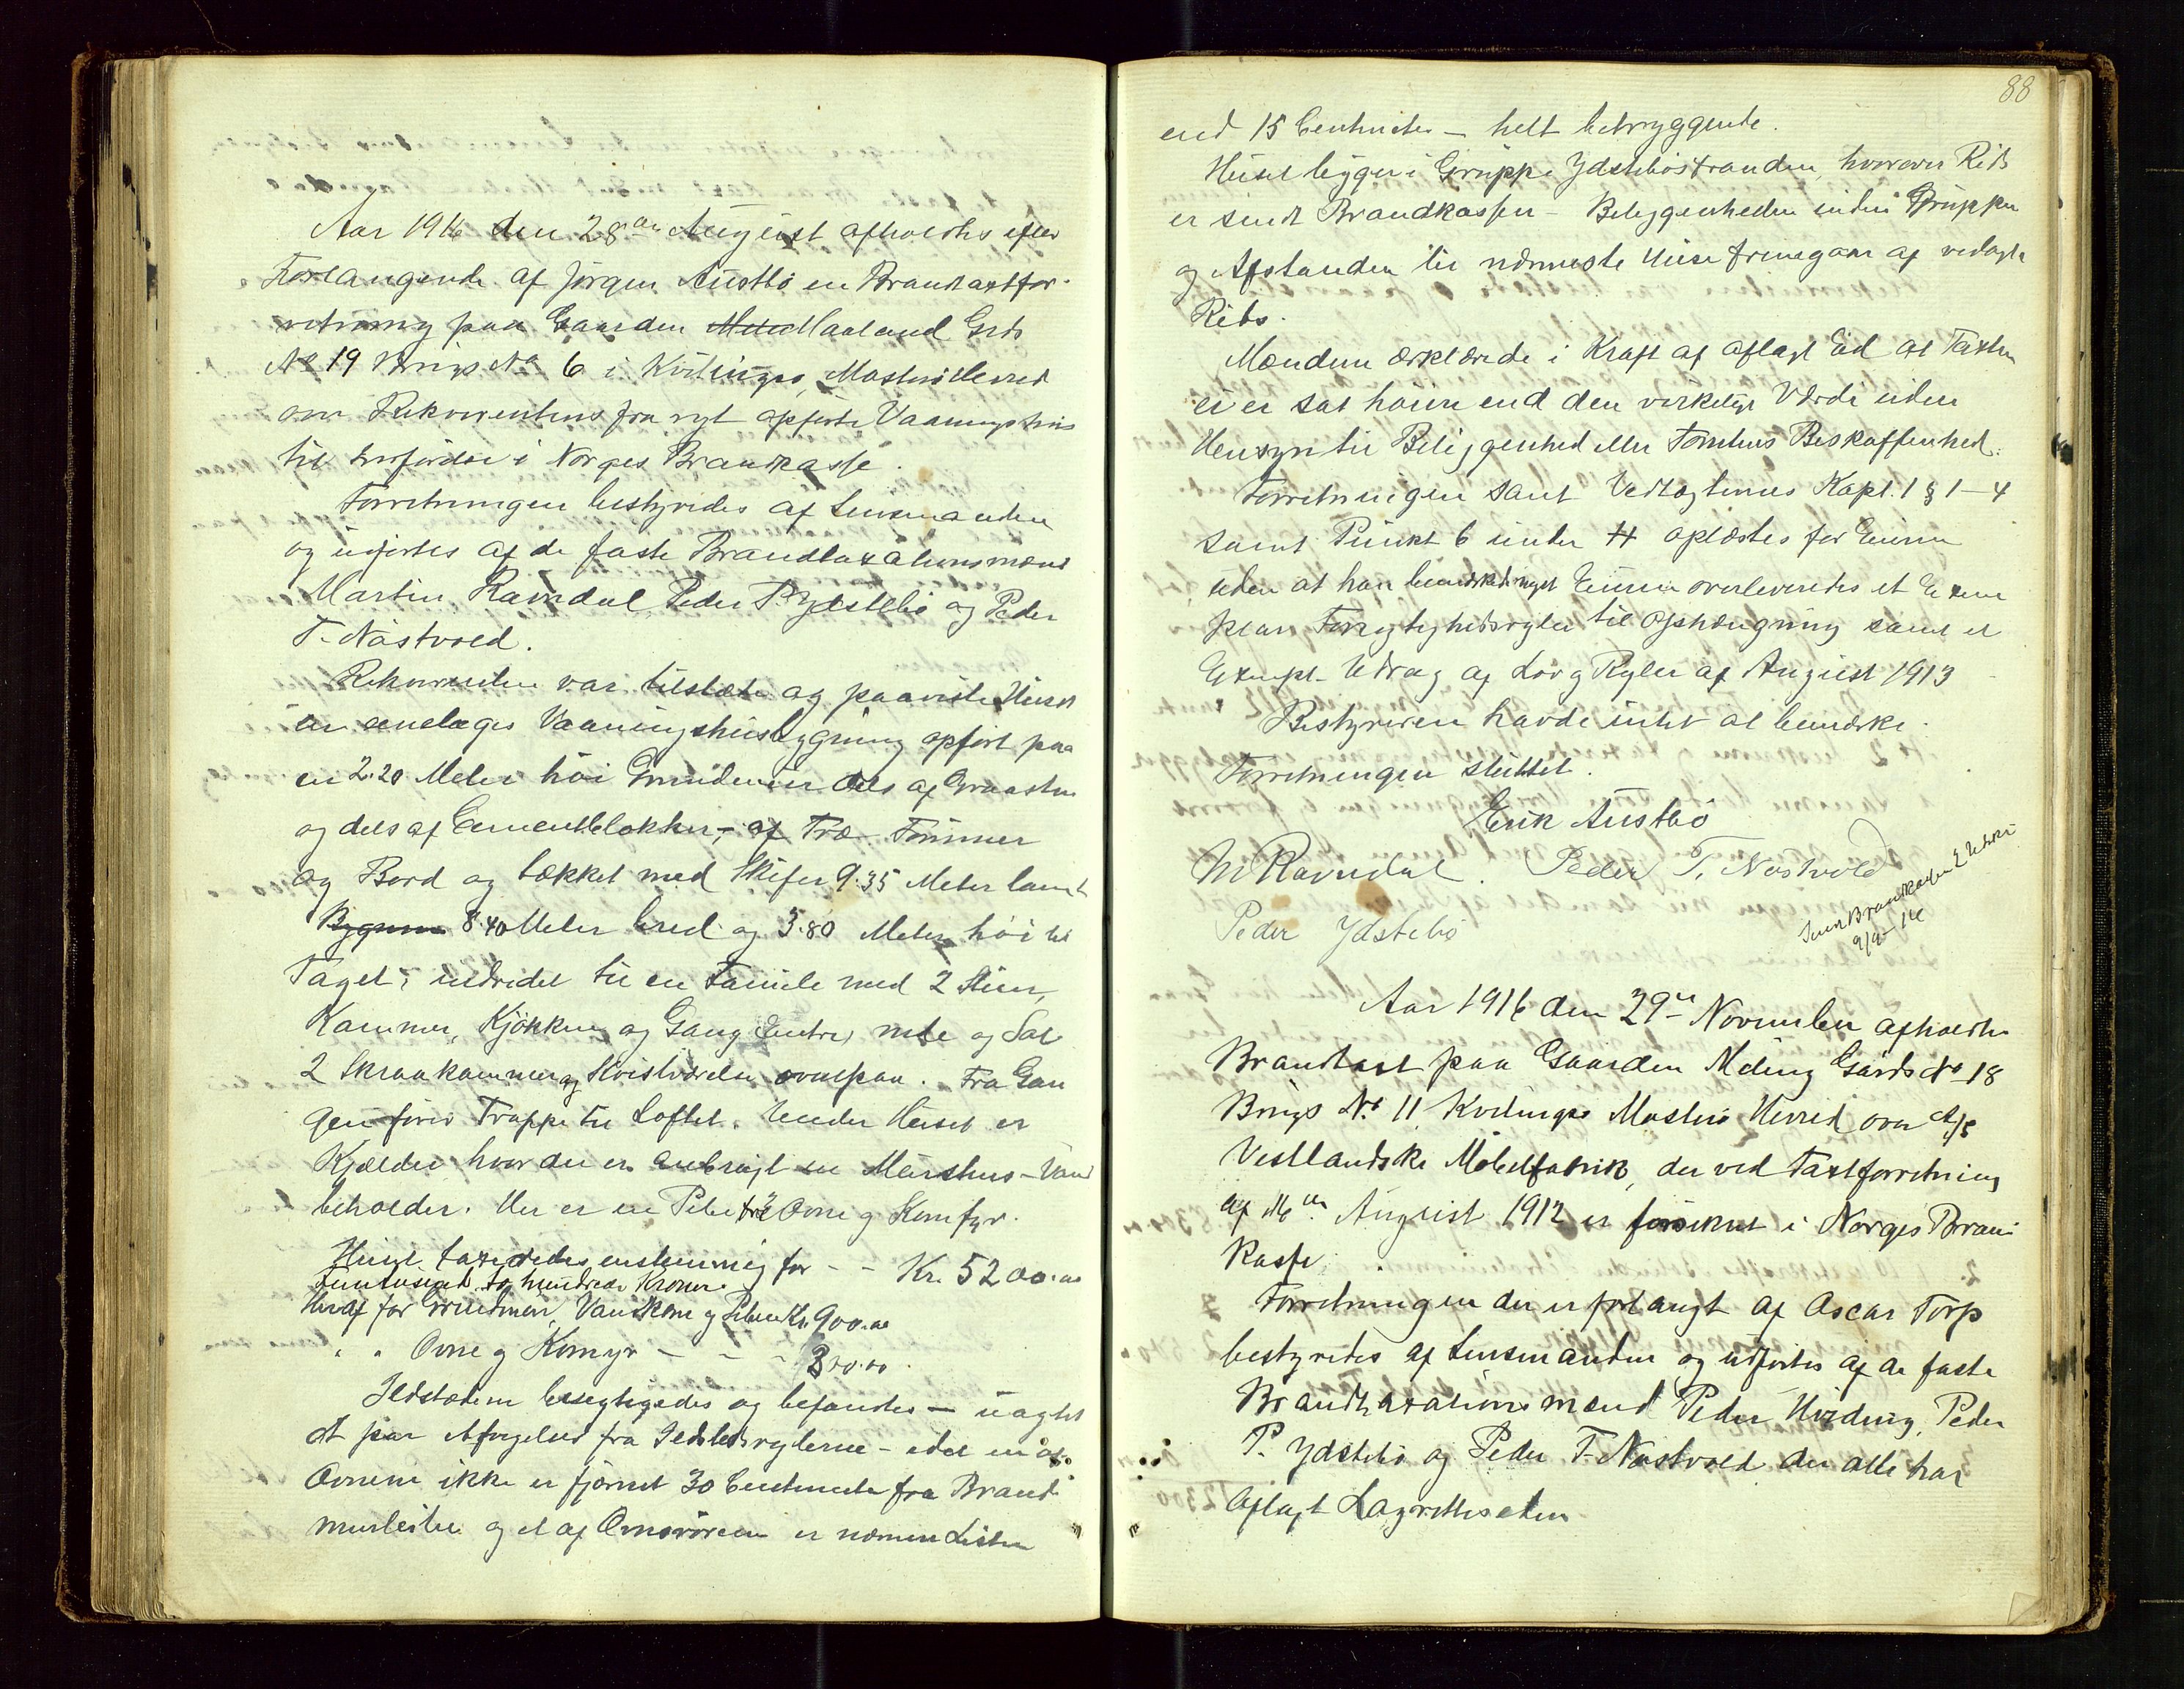 Aar 1916 den 28de August afholdtes efter
Forlangende af Jørgen Austbø en Brandtaxtfor-
retning paa Gaarden Haaland Grds
No 19 Brugs No 6 i Kvitingsø, Mosterø Herred
over Rekvirentens fra nyt opførte Vaaningshus
til Indførelse i Norges Brandkasse.
Forretningen bestyredes af Lensmanden
og udførtes af de faste Brandtaxationsmænd
Martin Ravndal Peder P. Ydstebø og Peder
T. Nästvold.
Rekvirenten var tilstæde og paaviste Huset
en enetages Vaaningshusbygning opført paa
en 2.20 Meter høi Grundmur dels af Graasten
og dels af Cementblokker, - af Træ Tømmer
og Bord og tækket med Skifer 9.35 Meter lang
8.40 Meter bred og 3.80 Meter høi til
Taget; indredet til en Familie med 2 Stuer,
Kammer, Kjøkken og Gang Entre nede og Sal
2 Skraakammer og Kvistværelse ovenpaa. Fra Gan
gen fører Trappe til Loftet. Under Huset er
Kjælder hvor der er anbragt en Vand
beholder. Her er en Pibe to Ovne og Komfyr.
Huset taxeredes enstemmig for - - Kr. 5200.00
Femtusend to hundrede Kroner
Heraf for Grundmur, Vandkum og Piben Kr. 900.00
" " Ovne og Komfyr - - - 200.00
Ildstæderne besigtigedes og befandtes - uagtet
et par Afvigelser fra Ildstedsreglerne - idet en af
Ovnene ikke er fjernet 30 Centimeter fra Brand
murlisten og et af Ovnsrørene er nærmere Listen
88
end 15 Centimeter - helt betryggende.
Huset ligger i Gruppe Ydstebøstranden, hvorover Rids
er sendt Brandkassen - Beliggenheden inden Gruppen
og Afstanden til nærmeste Huse fremgaar af vedlagte
Rids.
Mændene erklærede i Kraft af aflagt Ed at Taxten
ei er sat høiere end den virkelige Værdi uden
Hensyn til Beliggenhed eller Tomtens Beskaffenhed.
Forretningen samt Vedtægternes Kapt. 1 § 1-4
samt Punkt 6 under H oplæstes for Eieren
uden at han bemærket noget Eieren overleveredes et Exem
plar Forsigtighedsregler til Ophængning samt et
Exempl. Udrag af Lov og Regler af August 1913
Bestyreren havde intet at bemærke.
Forretningen sluttet.
Erik Austbø
M Ravndal. Peder T. Nöstvold
Peder Ydstebö
9/9-16
Aar 1916 den 29de November afholdtes
Brandtaxt paa Gaarden Meling Gaards No 18
Brugs No 11 Kvitingsø Mosterø Herred over A/S
Vestlandske Møbelfabrik, der ved Taxtforretning
af 16de August 1912 er forsikret i Norges Brand
kasse.
Forretningen der er forlangt af Oscar Torp
bestyredes af Lensmanden og udførtes af de faste
Brandtaxationsmænd Peder Hviding, Peder
P. Ydstebø og Peder T. Nästvold der alle har
aflagt Lagretteseden